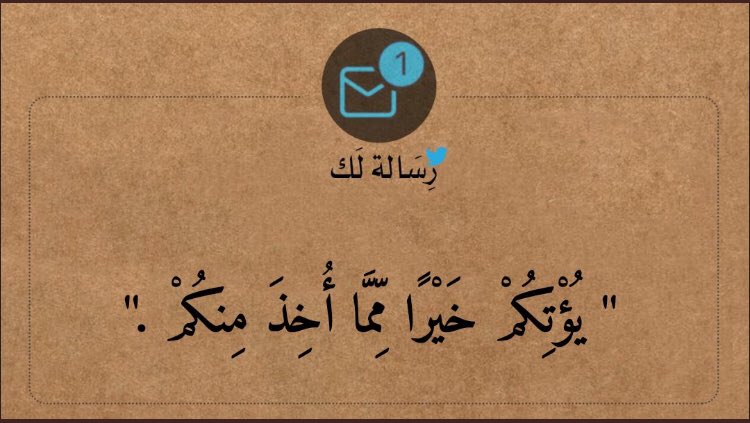 1
رِسَالة لَك
" يُؤْتِكُمْ خَيْرًا مِّمَّا أُخِذَ مِنكُمْ ."